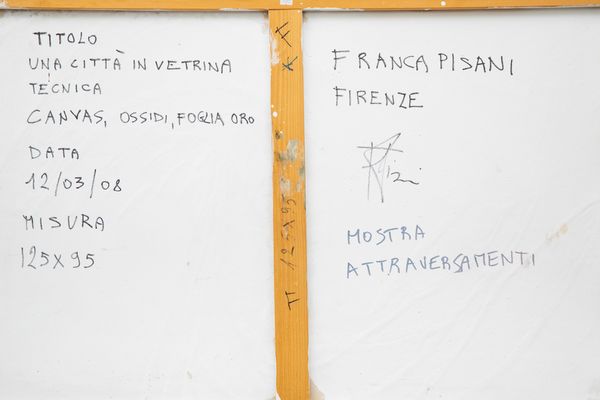 TITOLO
UNA CITTÀ IN VETRINA
TECNICA
CANVAS, OSSIDI, FOGLIA ORO
DATA
12/03/08
MISURA
125X95
125X95
FRANCA PISANI
FIRENZE
MOSTRA
ATTRAVERSAMENTI